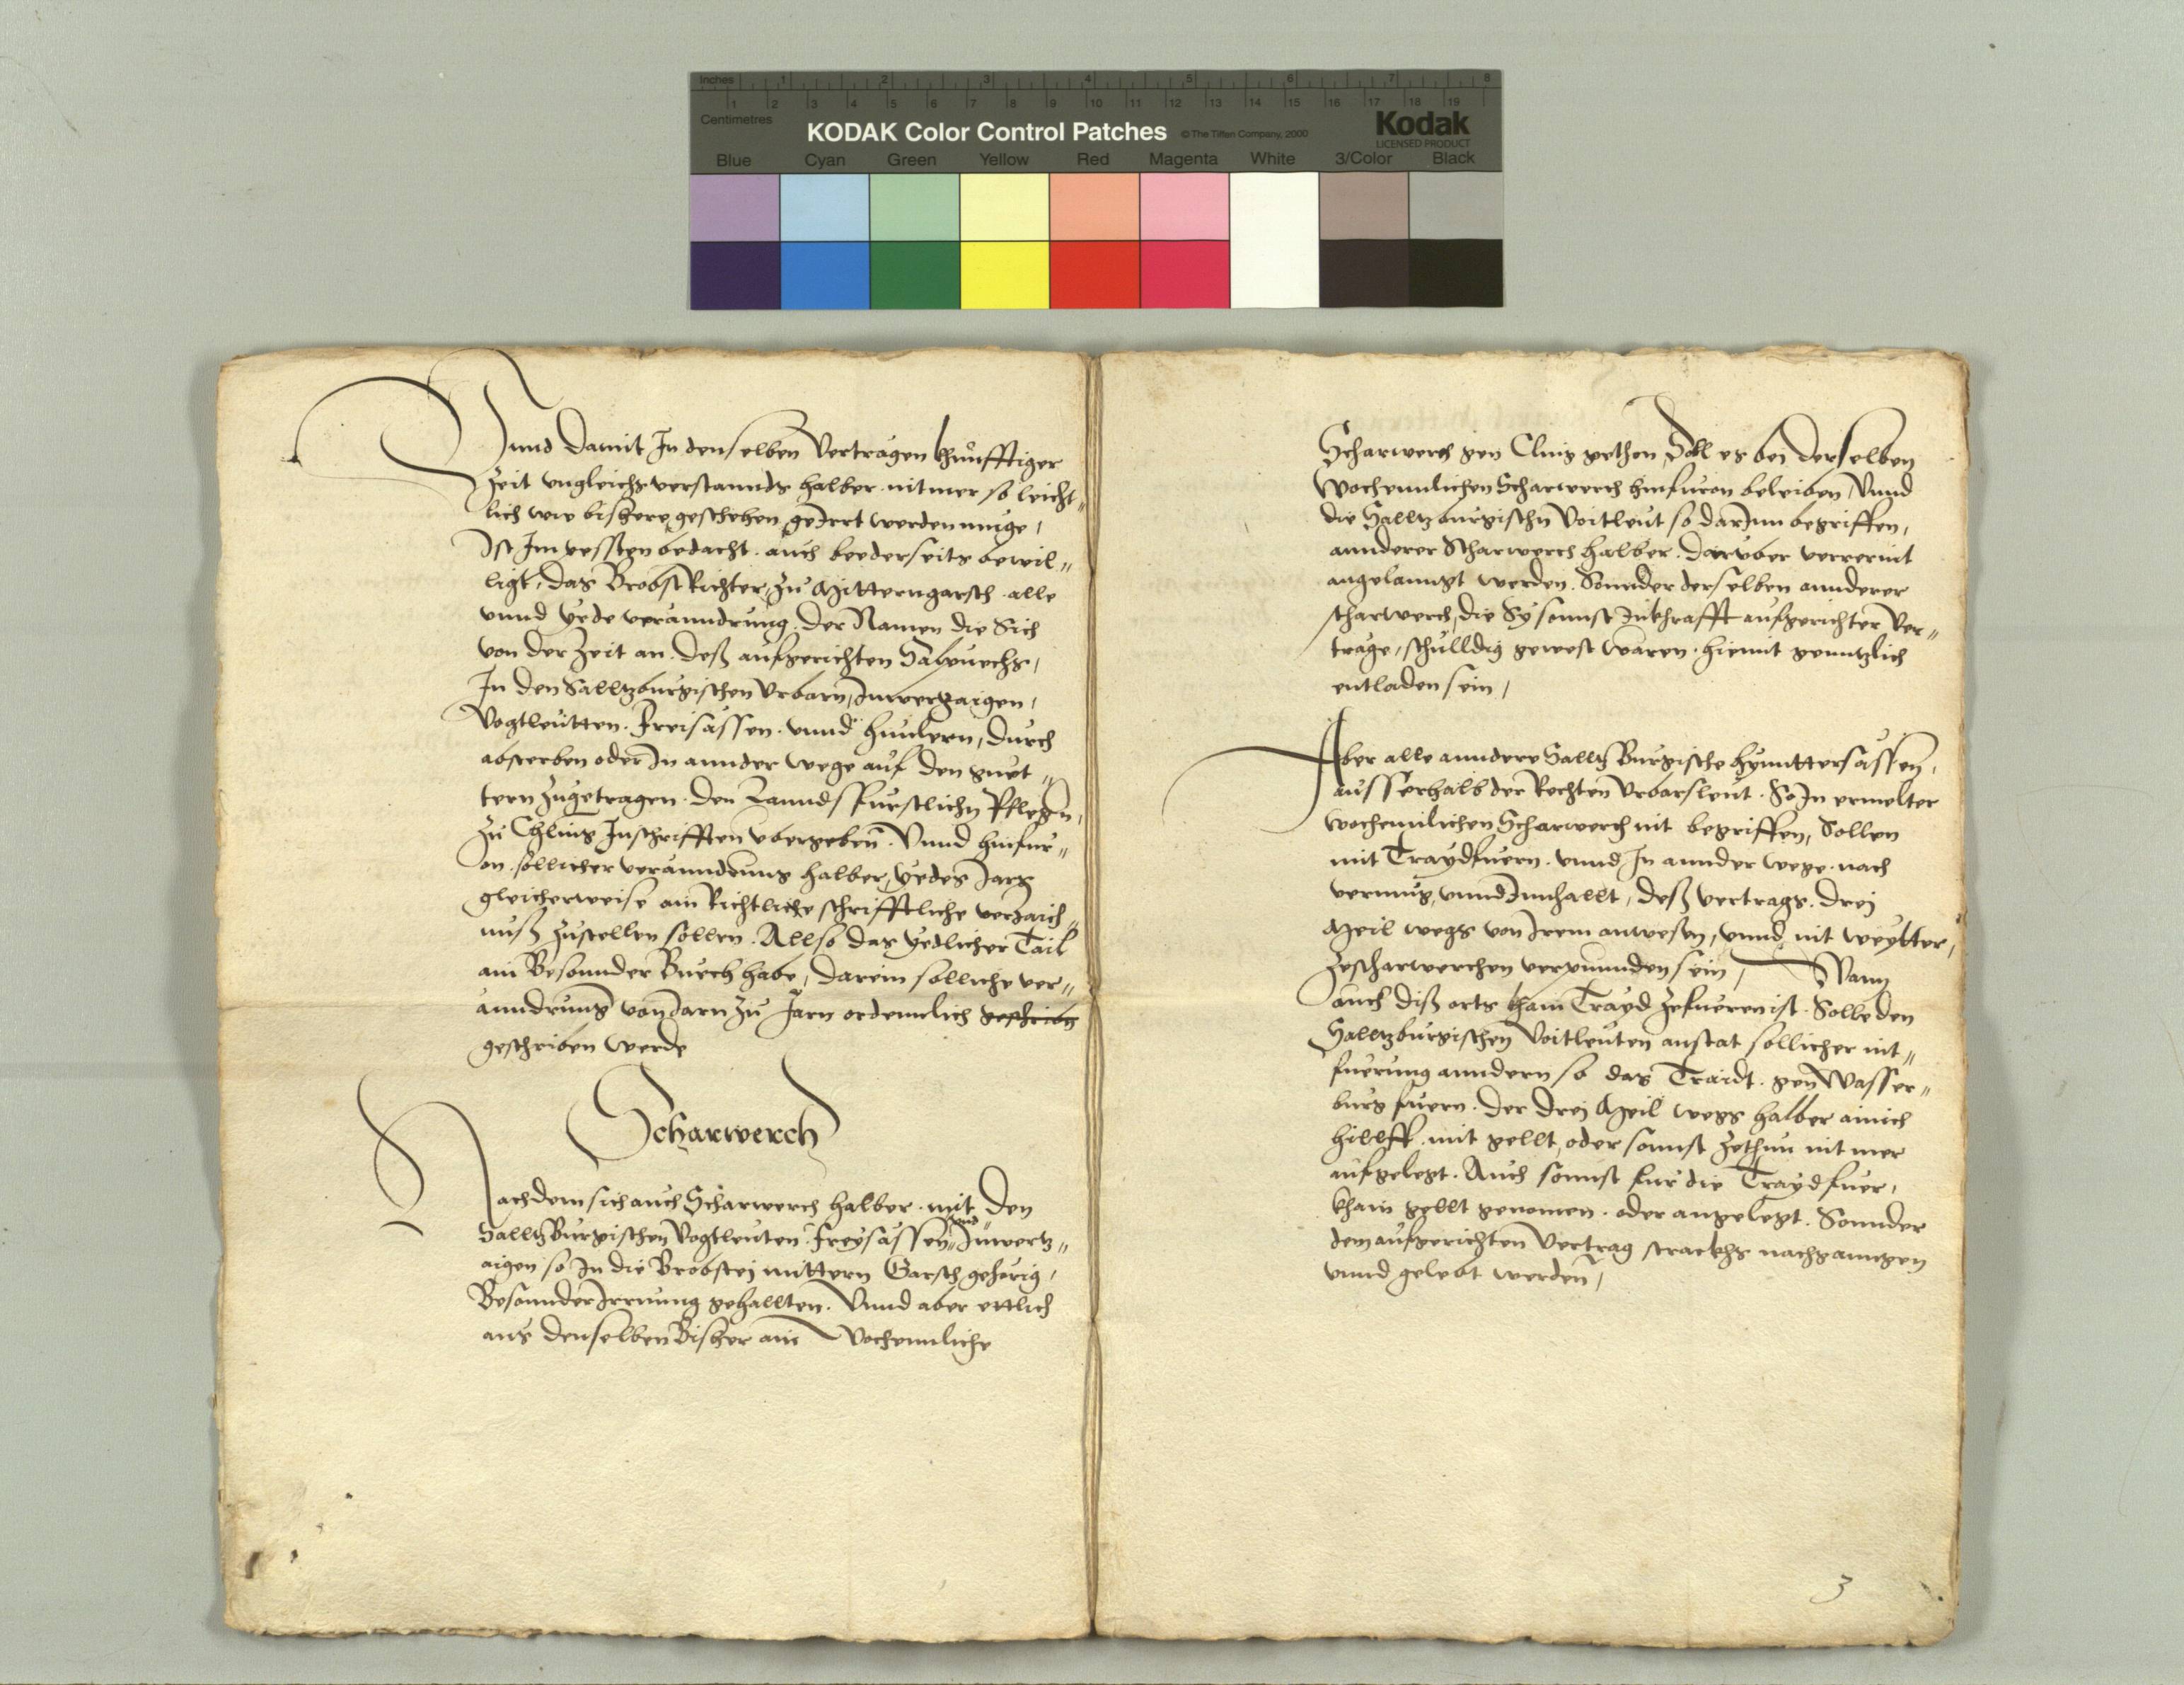 Inches 1 2 3 4 5 6 7 8
1 2 3 4 5 6 7 8 9 10 11 12 13 14 15 16 17 18 19
Centimetres
KODAK Color Control Patches © The Tiffen Company, 2000 Kodak
LICENSED PRODUCT
Blue Cyan Green Yellow Red Magenta White 3/Color Black
Vnnd Damit In denselben Vertragen khunfftiger
Zeit vngleichs verstannds halber nit mer so leicht„
lich wie bishere geschehen geIrrt werden muge,
Ist Im pessten bedacht. auch beederseits bewil„
ligt, das Brobst Richter, zu Mitterngarsch alle
vnnd yede veranndrung. der Namen die Sich
von der Zeit an. deß aufgerichten Salpuechs,
In den Salltzburgischen Vrbarn, Inwertzaigen,
Vogtleutten. Freisässen. vnnd hindern, durch
absterben oder In annder wege auf den guet„
tern zugetragen. den Lanndsfurstlichn Pflegern,
zu Chling Inschrifften vbergeben. Vnnd hinfur„
on. sollicher veranndrung halber, yedes Jars
gleicherweise ain Richtliche schrifftliche verzaich„
nuß zustellen sollen. Allso das yedlicher Tail
ain Besonnder Buech habe, darein solliche ver„
anndrung von Jarn zu Jarn ordennlich geschribn
geschriben werde
Scharwerch
Nachdem sich auch Scharwerch halber. mit den
Salltzburgischen Vogtleuten. freysässen„ vnd Inwertz„
aigen so In die Brobstej mittern Garsch gehörig,
Besonnder Irrnung gehallten. Vnnd aber ettlich
aus denselben Bisher ain Wochennliche
Scharwerch gen Cling gethon, Soll es bei derselben
Wochennlichen Scharwerch hinfuron beleiben, Vnnd
die Salltzburgischn Voitleut so darInn begriffen,
annderer Scharwerch halber. daruber verrer nit
angelanngt werden. Sonnder derselben annderer
scharwerch, die Sy sonnst Inkhrafft aufgerichter Ver„
trage, schulldig gewest wären. hiemit genntzlich
entladen sein,
Aber alle anndere Salltzburgische hynndersässen,
ausserhalb der Rechten Vrbarsleut. So In ermelter
Wochennlichen Scharwerch nit begriffen, Sollen
mit Traydfuern. vnnd In annder wege. nach
vermug, vnnd Innhallt, deß vertrags. drej
Meil wegs von Irem anwesen, vnnd nit weytter,
zescharwerchen verpunnden sein, Wann
auch diß orts khain Trayd zefueren ist. Solle den
Salltzburgischen Voitleuten anstat sollicher nit„
fuerung anndern so das Traidt. gen Wasser„
burg fuern. der drej Meil wegs halber ainich
hillff. mit gellt, oder sonnst zethun nit mer
aufgelegt. Auch sonnst fur die Traydfuer,
khain gellt genomen. oder angelegt. Sonnder
dem aufgerichten Vertrag strackhs nachganngen
vnnd gelebt werden,
3